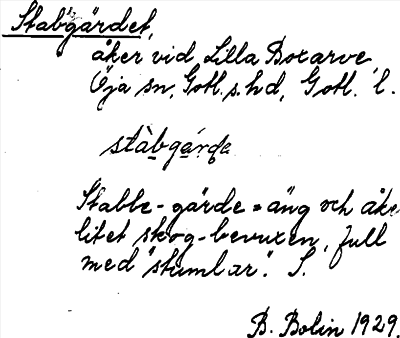 Stabgärdet,
åker vid Lilla Boxarve
Öja sn, Gotl. s. hd, Gotl. l.
stàbgárdɐ
Stabbe-gärde = äng och åke
litet skog-bevuxen, full
med "stumlar". S.
B. Bolin 1929.